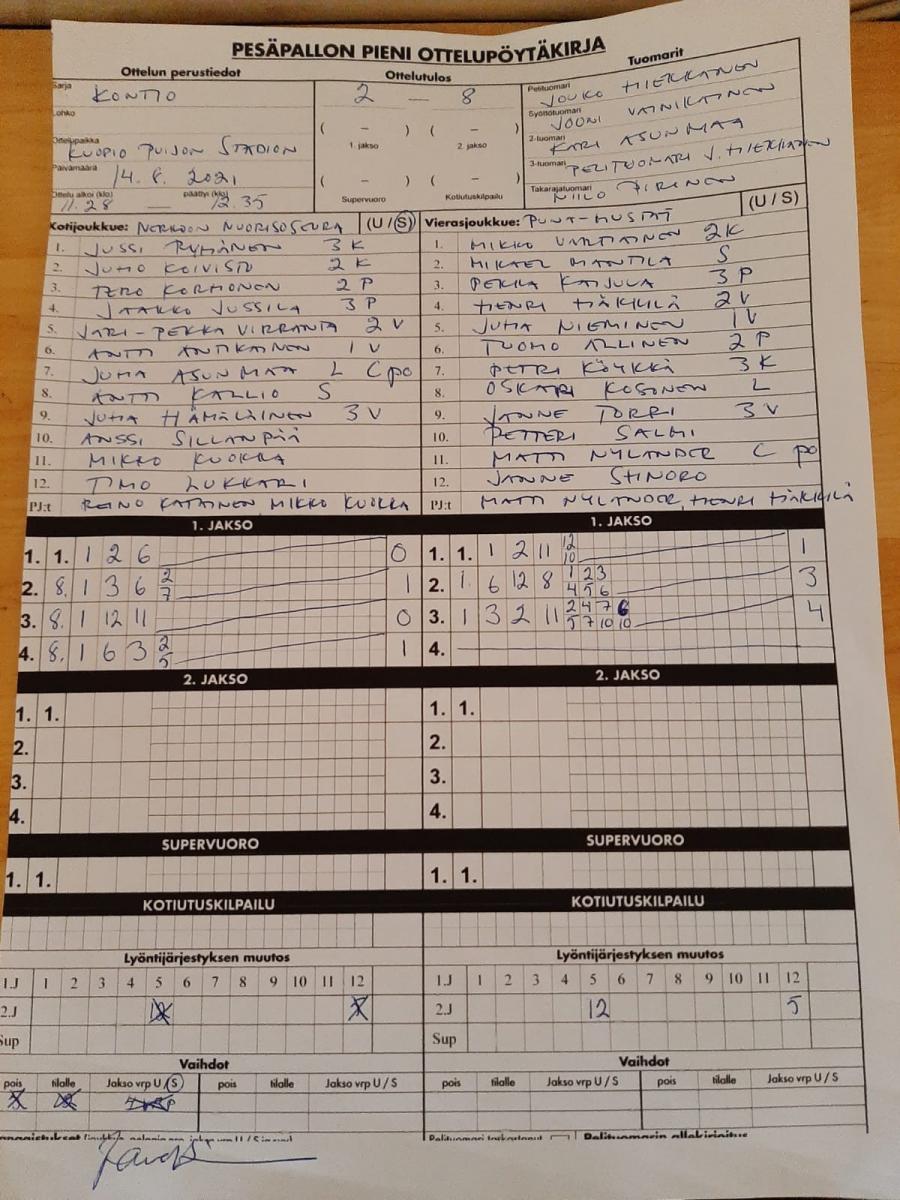 PESÄPALLON PIENI OTTELUPÖYTÄKIRJA
Ottelun perustiedot
Sarja
KONTIO
Lohko
Ottelupaikka
KUOPIO PUIJON STADION
Päivämäärä
14.8.2021
Ottelu alkoi (klo) päättyi (klo)
11.28 — 12.35
Ottelutulos
2 — 8
( – ) ( – )
1. jakso 2. jakso
( – ) ( – )
Supervuoro Kotiutuskilpailu
Tuomarit
Pelituomari
JOUKO HIEKKANEN
Syöttötuomari
JOONI VAINIKAINEN
2-tuomari
KARI ASUNMAA
3-tuomari
PELITUOMARI J. HIEKKANEN
Takarajatuomari
NIILO PIRINEN
Kotijoukkue: NERKOON NUORISOSEURA (U / S)
1. JUSSI RYHÄNEN 3K
2. JUHO KOIVISTO 2K
3. TERO KORHONEN 2P
4. JAAKKO JUSSILA 3P
5. JARI-PEKKA VIRRANTA 2V
6. ANTTI ANTIKAINEN 1V
7. JUHA ASUNMAA L C po
8. ANTTI KALLIO S
9. JUHA HÄMÄLÄINEN 3V
10. ANSSI SILLANPÄÄ
11. MIKKO KUOKKA
12. TIMO LUKKARI
PJ:t REINO KATAINEN MIKKO KUOKKA
Vierasjoukkue: PUNA-MUSTAT (U / S)
1. MIKKO VARTIAINEN 2K
2. MIKAEL MANTILA S
3. PEKKA KAIJULA 3P
4. HENRI HÄKKILÄ 2V
5. JUHA NIEMINEN 1V
6. TUOMO ALLINEN 2P
7. PETRI KÖYKKÄ 3K
8. OSKARI KOSONEN L
9. JANNE TORRI 3V
10. PETTERI SALMI
11. MATTI NYLANDER C po
12. JANNE
PJ:t MATTI NYLANDER, HENRI HÄKKILÄ
1. JAKSO
1. 1. 1 2 6 0
2. 8. 1 3 6 2 7 1
3. 8. 1 12 11 0
4. 8. 1 6 3 2 5 1
1. JAKSO
1. 1. 1 2 11 12 10 1
2. 1. 6 12 8 1 2 3 4 5 6 3
3. 1 3 2 11 2 4 7 6 5 7 10 10 4
4.
2. JAKSO
1. 1.
2.
3.
4.
2. JAKSO
1. 1.
2.
3.
4.
SUPERVUORO
1. 1.
SUPERVUORO
1. 1.
KOTIUTUSKILPAILU
KOTIUTUSKILPAILU
Lyöntijärjestyksen muutos
1.J 1 2 3 4 5 6 7 8 9 10 11 12
2.J
Sup
Lyöntijärjestyksen muutos
1.J 1 2 3 4 5 6 7 8 9 10 11 12
2.J 12 5
Sup
Vaihdot
pois tilalle Jakso vrp U / S pois tilalle Jakso vrp U / S
Vaihdot
pois tilalle Jakso vrp U / S pois tilalle Jakso vrp U / S